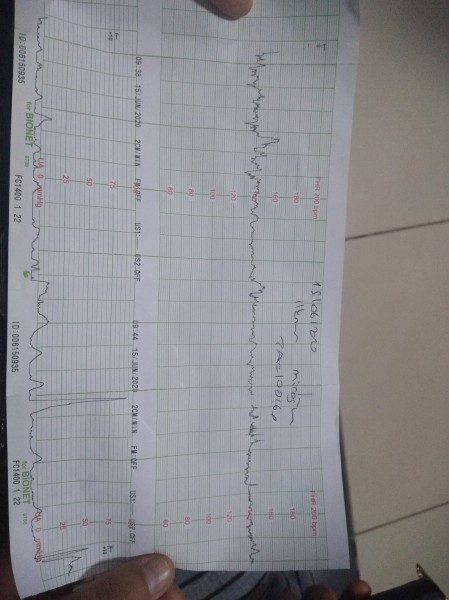 FHR 200 bpm
180
160
120
100
80
60
FHR 200 bpm
180
160
120
100
80
60
15/06/2020
TA=100/60
09:38 15/JUN/2020 2CM/MIN FM:OFF US1:--- US2:OFF
09:44 15/JUN/2020 2CM/MIN FM:OFF US1:--- US2:OFF
75
50
25
UA 0 mmHg
75
50
25
UA 0 mmHg
ID:006150935
for BIONET
FC1400 1.22
ID:006150935
for BIONET
FC1400 1.22